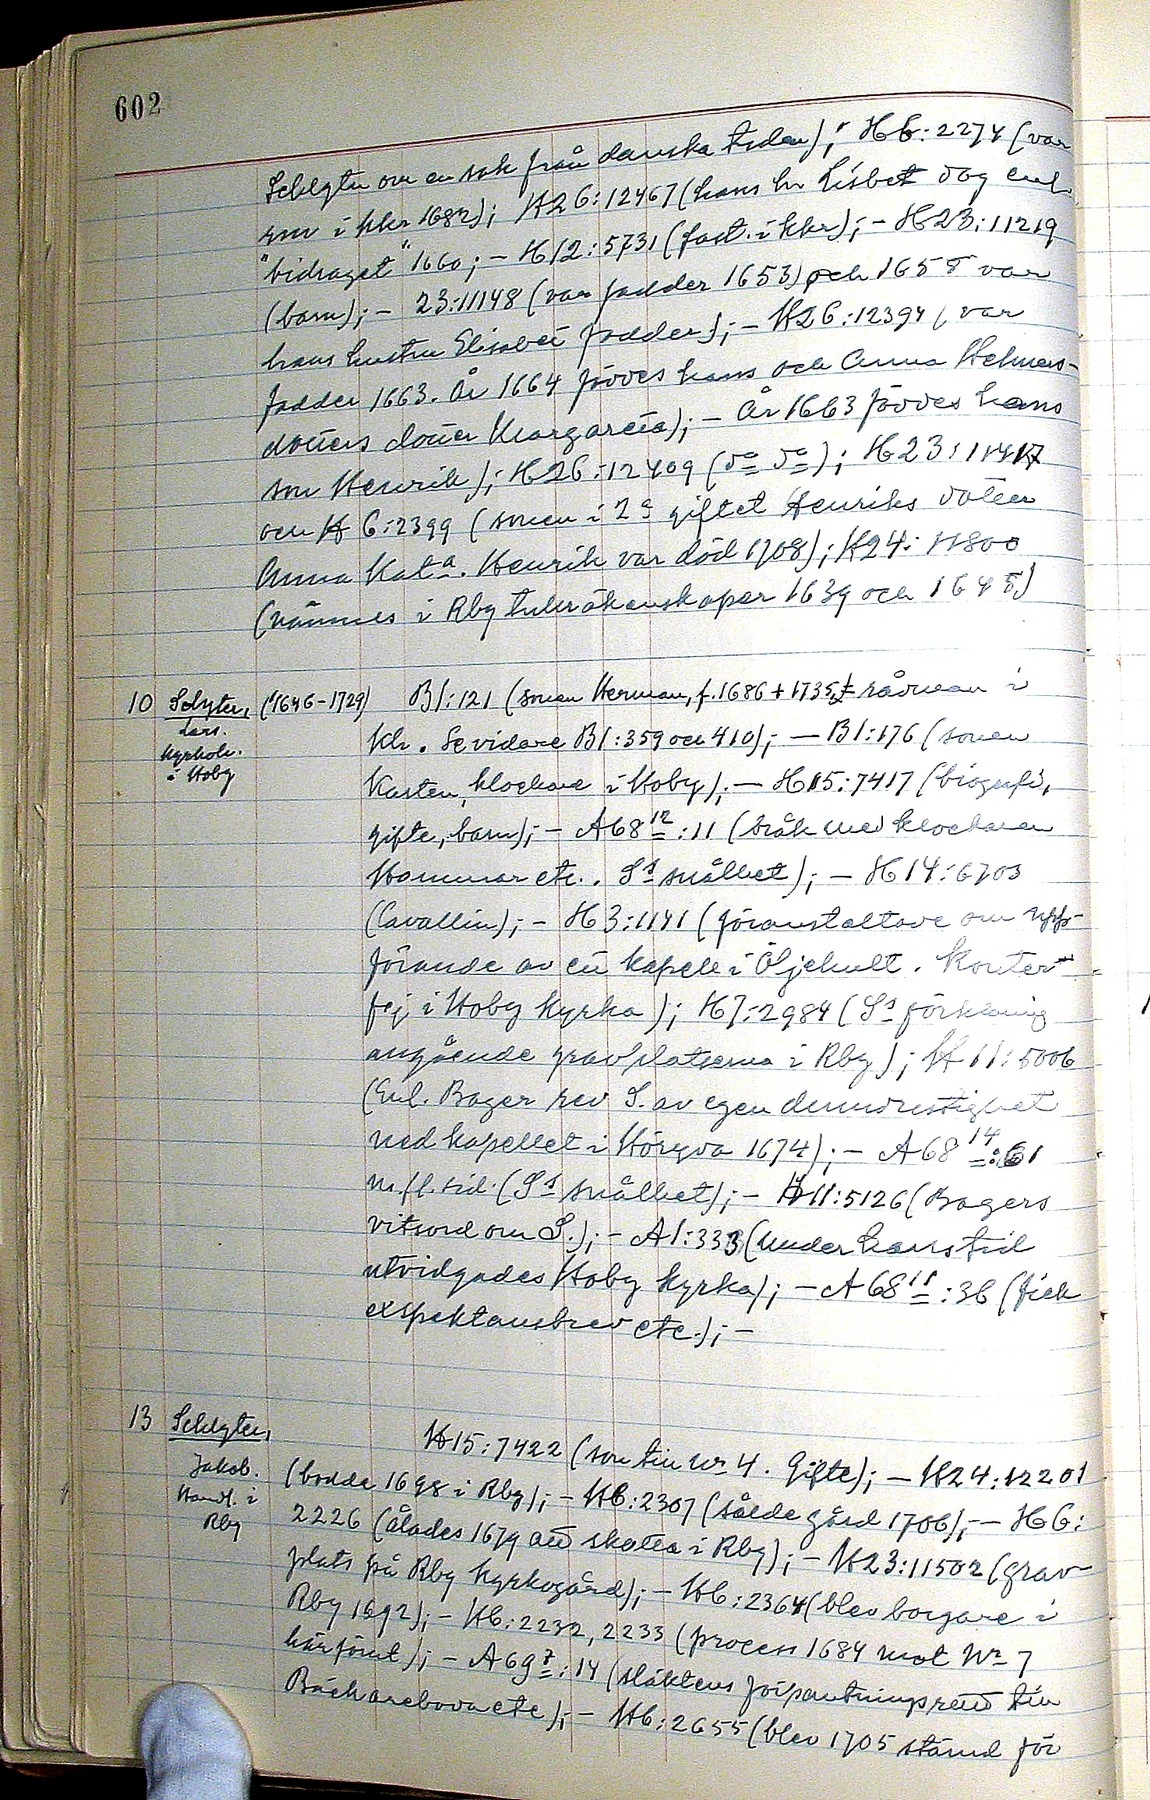 602
Schlyter om en sak från danska tiden); H6:2274 (var
rm i kkr 1682); H26:12467 (hans h. Lisbet dog enl.
"bidraget" 1660; – H12:5731 (fast. i kkr); – H23:11219
(barn); – 23:11148 (var fadder 1653) och 1658 var
hans hustru Elisabet fadder); – H26:12394 (var
fadder 1663. År 1664 föddes hans och Anna Helmers-
dotters dotter Margareta); – År 1663 föddes hans
son Henrik); H26:12409 (do do); H23:11417
och H6:2399 (sonen i 2a giftet Henriks dotter
Anna Kata. Henrik var död 1708); H24:11800
(nämnes i Rby tullräkenskaper 1639 och 1645)
10 Schlyter, (1646-1729) B1:121 (sonen Herman, f. 1686 + 1735, rådman i
Lars.
Kyrkoh.
i Hoby
Kh. Se vidare B1:359 och 410); – B1:176 (sonen
Karsten, klockare i Hoby); – H15:7417 (biografi,
gifte, barn); – A68 12:11 (bråk med klockaren
Hammar etc. Ss snålhet); – H14:6703
(Cavallin); – H3:1141 (föranstaltare om upp-
förande av ett kapell i Öljehult. Konter-
fej i Hoby kyrka); H7:2984 (Ss förklaring
angående gravplatserna i Rby); H11:5006
(Enl. Bager rev S. av egen dumdristighet
ned kapellet i Höryda 1674); – A68 14:61
m.fl. sid. (Ss snålhet); – H11:5126 (Bagers
vitsord om S.); – A1:333 (under hans tid
utvidgades Hoby kyrka); – A68 11:36 (fick
exspektansbrev etc.); –
13 Schlyter,
Jakob.
Handl. i
Rby
H15:7422 (son till nr 4. Gifte); – H24:12201
(bodde 1698 i Rby); – H6:2307 (sålde gård 1706); – H6:
2226 (ålades 1679 att skatta i Rby); – H23:11502 (grav-
plats på Rby kyrkogård); – H6:2364 (blev borgare i
Rby 1692); – H6:2232, 2233 (process 1684 mot Nr 7
härförut); – A69 7:14 (släktens förpantningsrätt till
Bäckarebova etc); – H6:2655 (blev 1705 stämd för